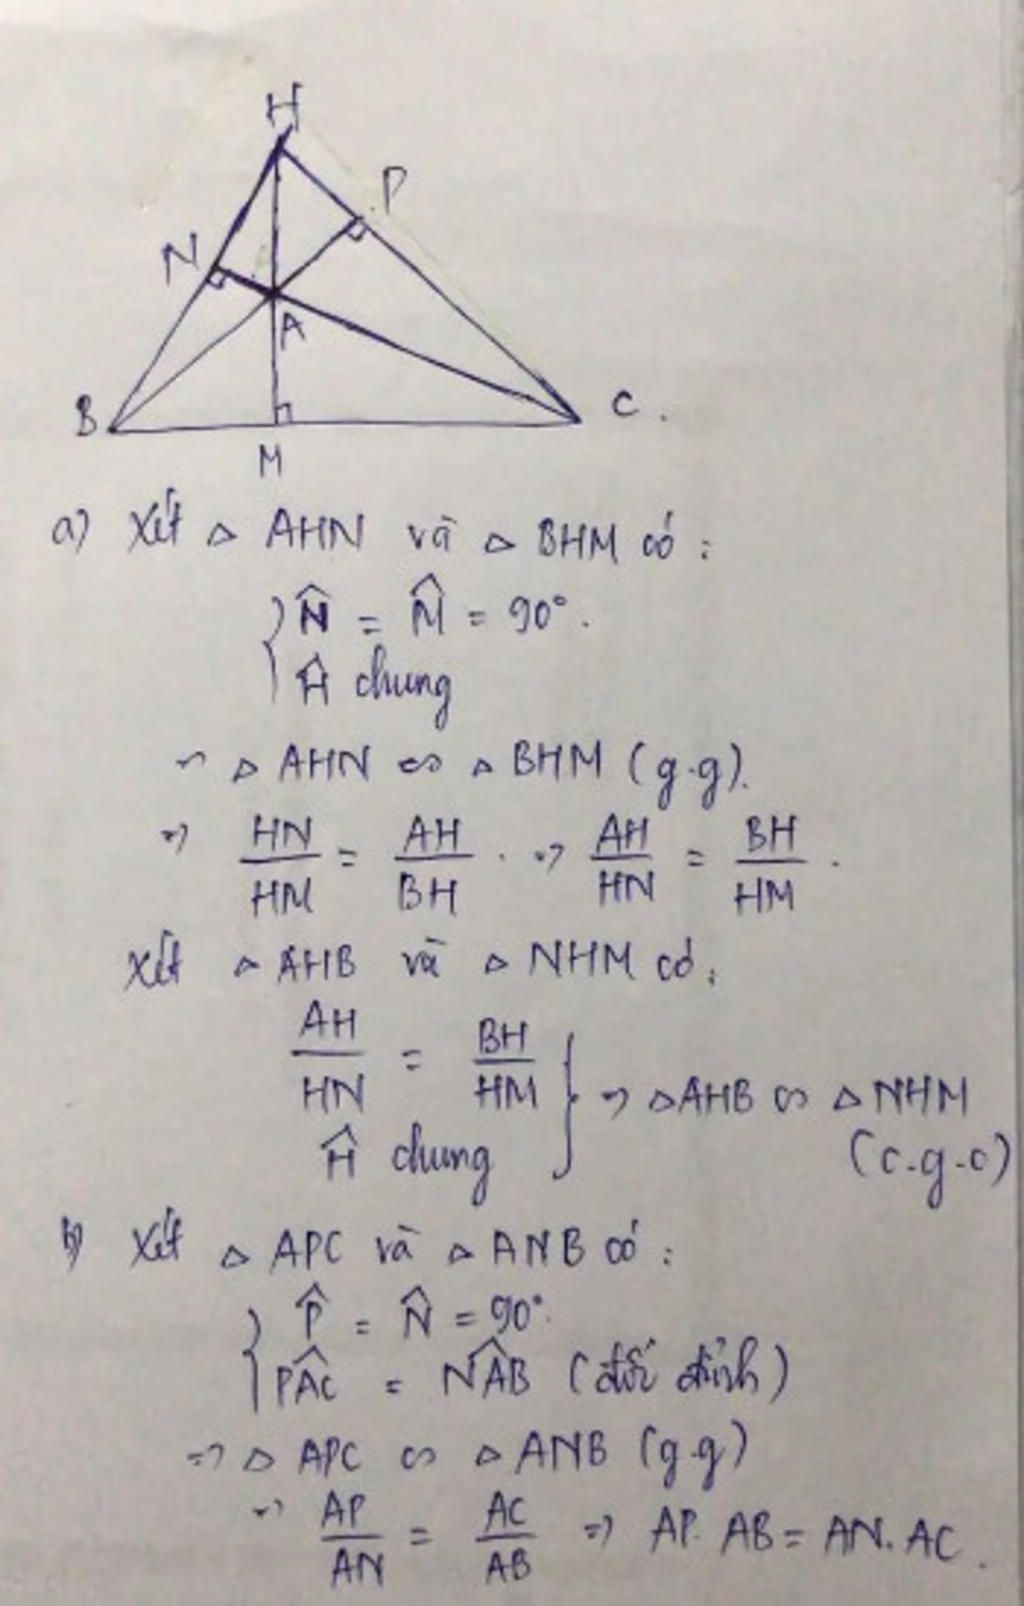 H
P
N
A
B
C.
M
a) Xét △ AHN và △ BHM có:
{ N̂ = M̂ = 90°.
Ĥ chung
⇒ △ AHN ∽ △ BHM (g.g).
⇒ HN/HM = AH/BH. ⇒ AH/HN = BH/HM.
Xét △ AHB và △ NHM có:
AH/HN = BH/HM
Ĥ chung } ⇒ △AHB ∽ △NHM
(c.g.c)
b) Xét △ APC và △ ANB có:
{ P̂ = N̂ = 90°.
PÂC = NÂB (đối đỉnh)
⇒ △ APC ∽ △ ANB (g.g)
⇒ AP/AN = AC/AB ⇒ AP. AB = AN. AC.